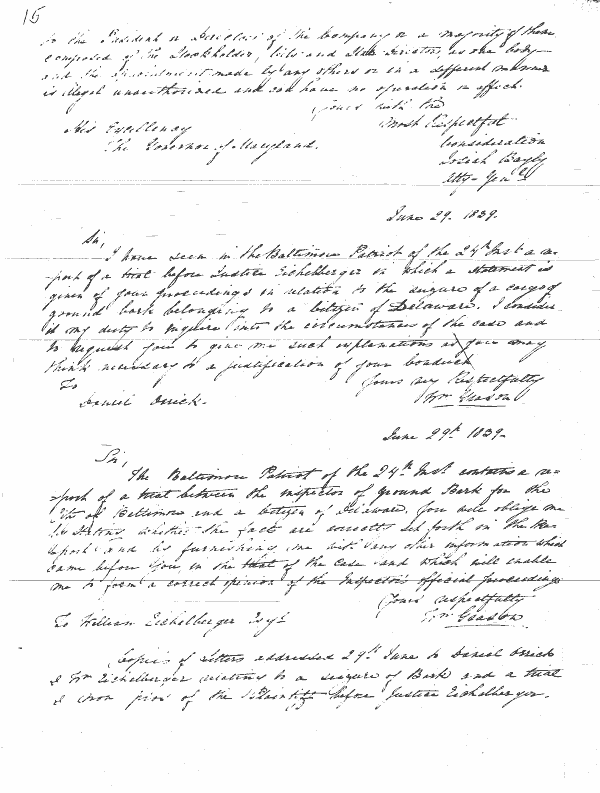 15
to the President or Directors of the Company or a majority of them
composed of the Stockholder, City and State Directors as one body
and the appointment made by any others or in a different manner
is illegal unauthorized and can have no operation or effect.
Yours with the
most Respectful
consideration
Josiah Bayly
Atty-Genl
His Excellency
The Governor of Maryland.
June 29. 1839.
Sir,
I have seen in the Baltimore Patriot of the 24th Inst a re-
port of a trial before Justice Eichelberger in which a statement is
given of your proceedings in relation to the seizure of a cargo of
ground bark belonging to a citizen of Delaware. I consider
it my duty to inquire into the circumstances of the case and
to request you to give me such explanations as you may
think necessary to a justification of your conduct
To
Yours very Respectfully
Wm Grason
Daniel Orrick.
June 29th 1839.
Sir,
The Baltimore Patriot of the 24th Inst contains a re-
port of a trial between the inspector of ground Bark for the
City of Baltimore and a citizen of Delaware. You will oblige me
by stating whether the fact are correctly set forth in the Re-
port and by furnishing me with any other information which
came before you in the trial of the case and which will enable
me to form a correct opinion of the Inspector's official proceedings
Yours respectfully
To William Eichelberger Esqr
Wm Grason
Copies of Letters addressed 29th June to Daniel Orrick
& Wm Eichelberger relating to a seizure of Bark and a trial
of the Plaintiff before Justice Eichelberger.